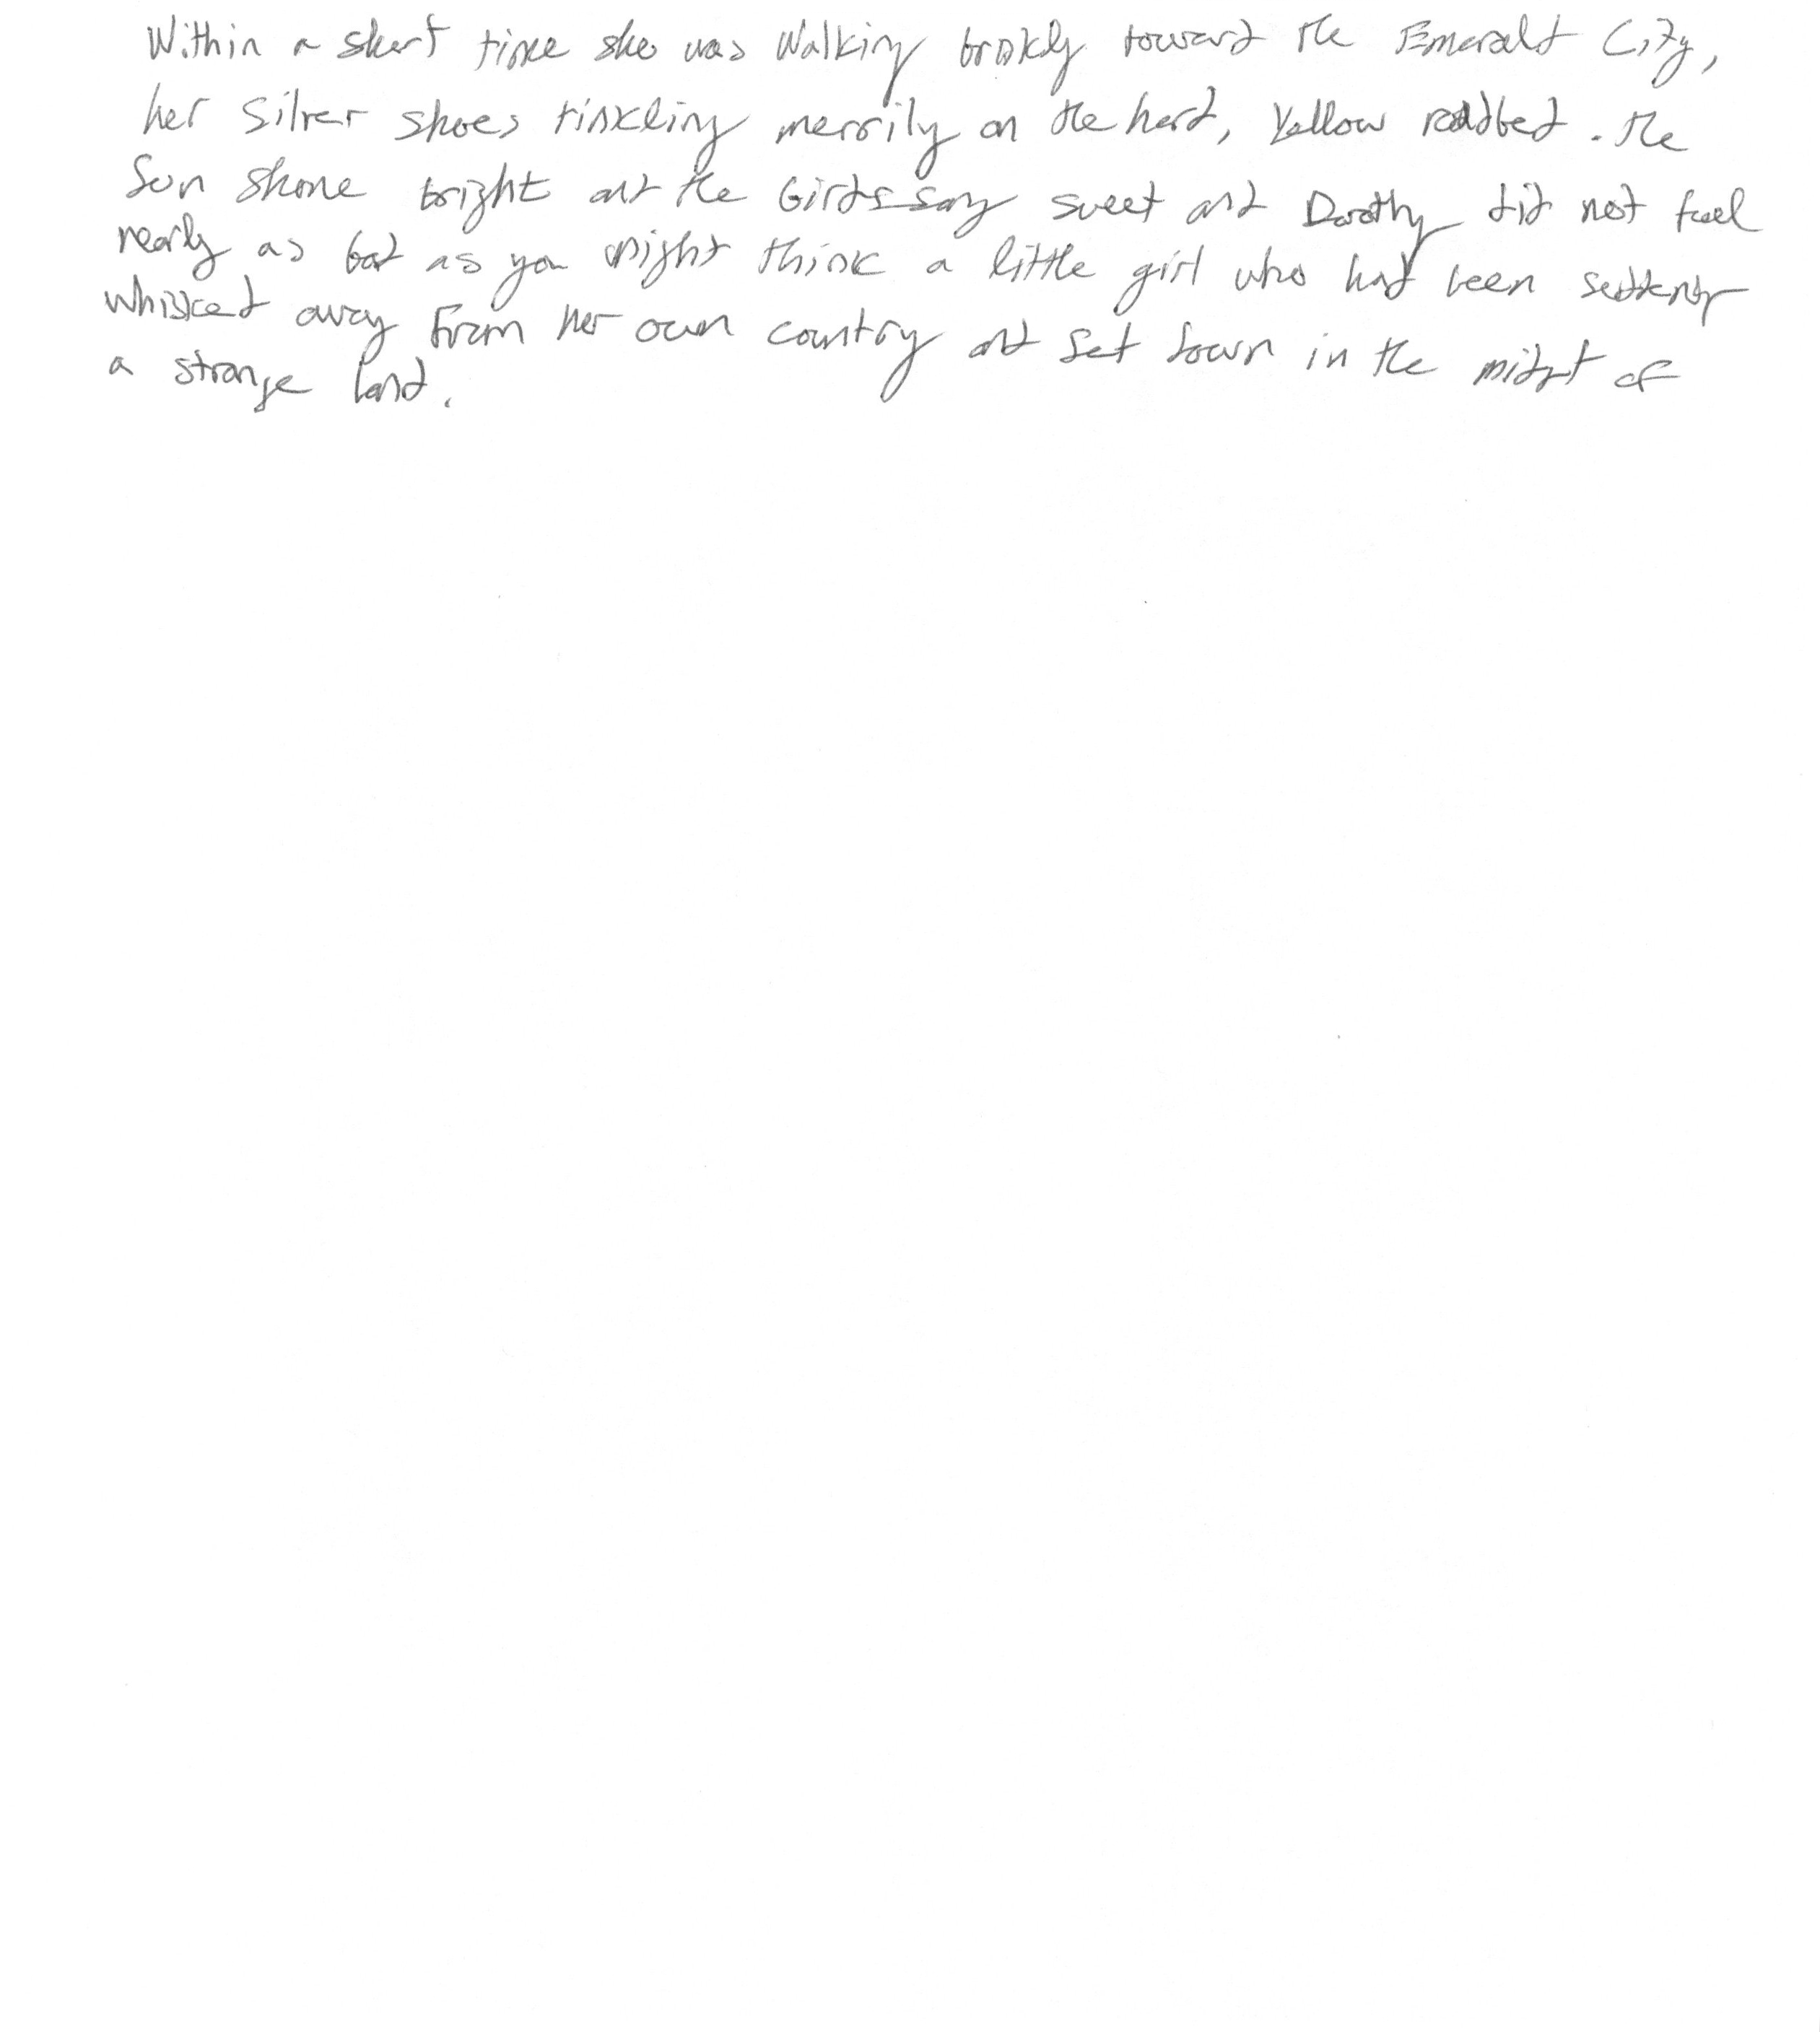 Within a short time she was walking briskly toward the Emerald City,
her silver shoes tinkling merrily on the hard, yellow roadbed. The
sun shone bright and the birds sang sweet and Dorothy did not feel
nearly as bad as you might think a little girl who had been suddenly
whisked away from her own country and set down in the midst of
a strange land.